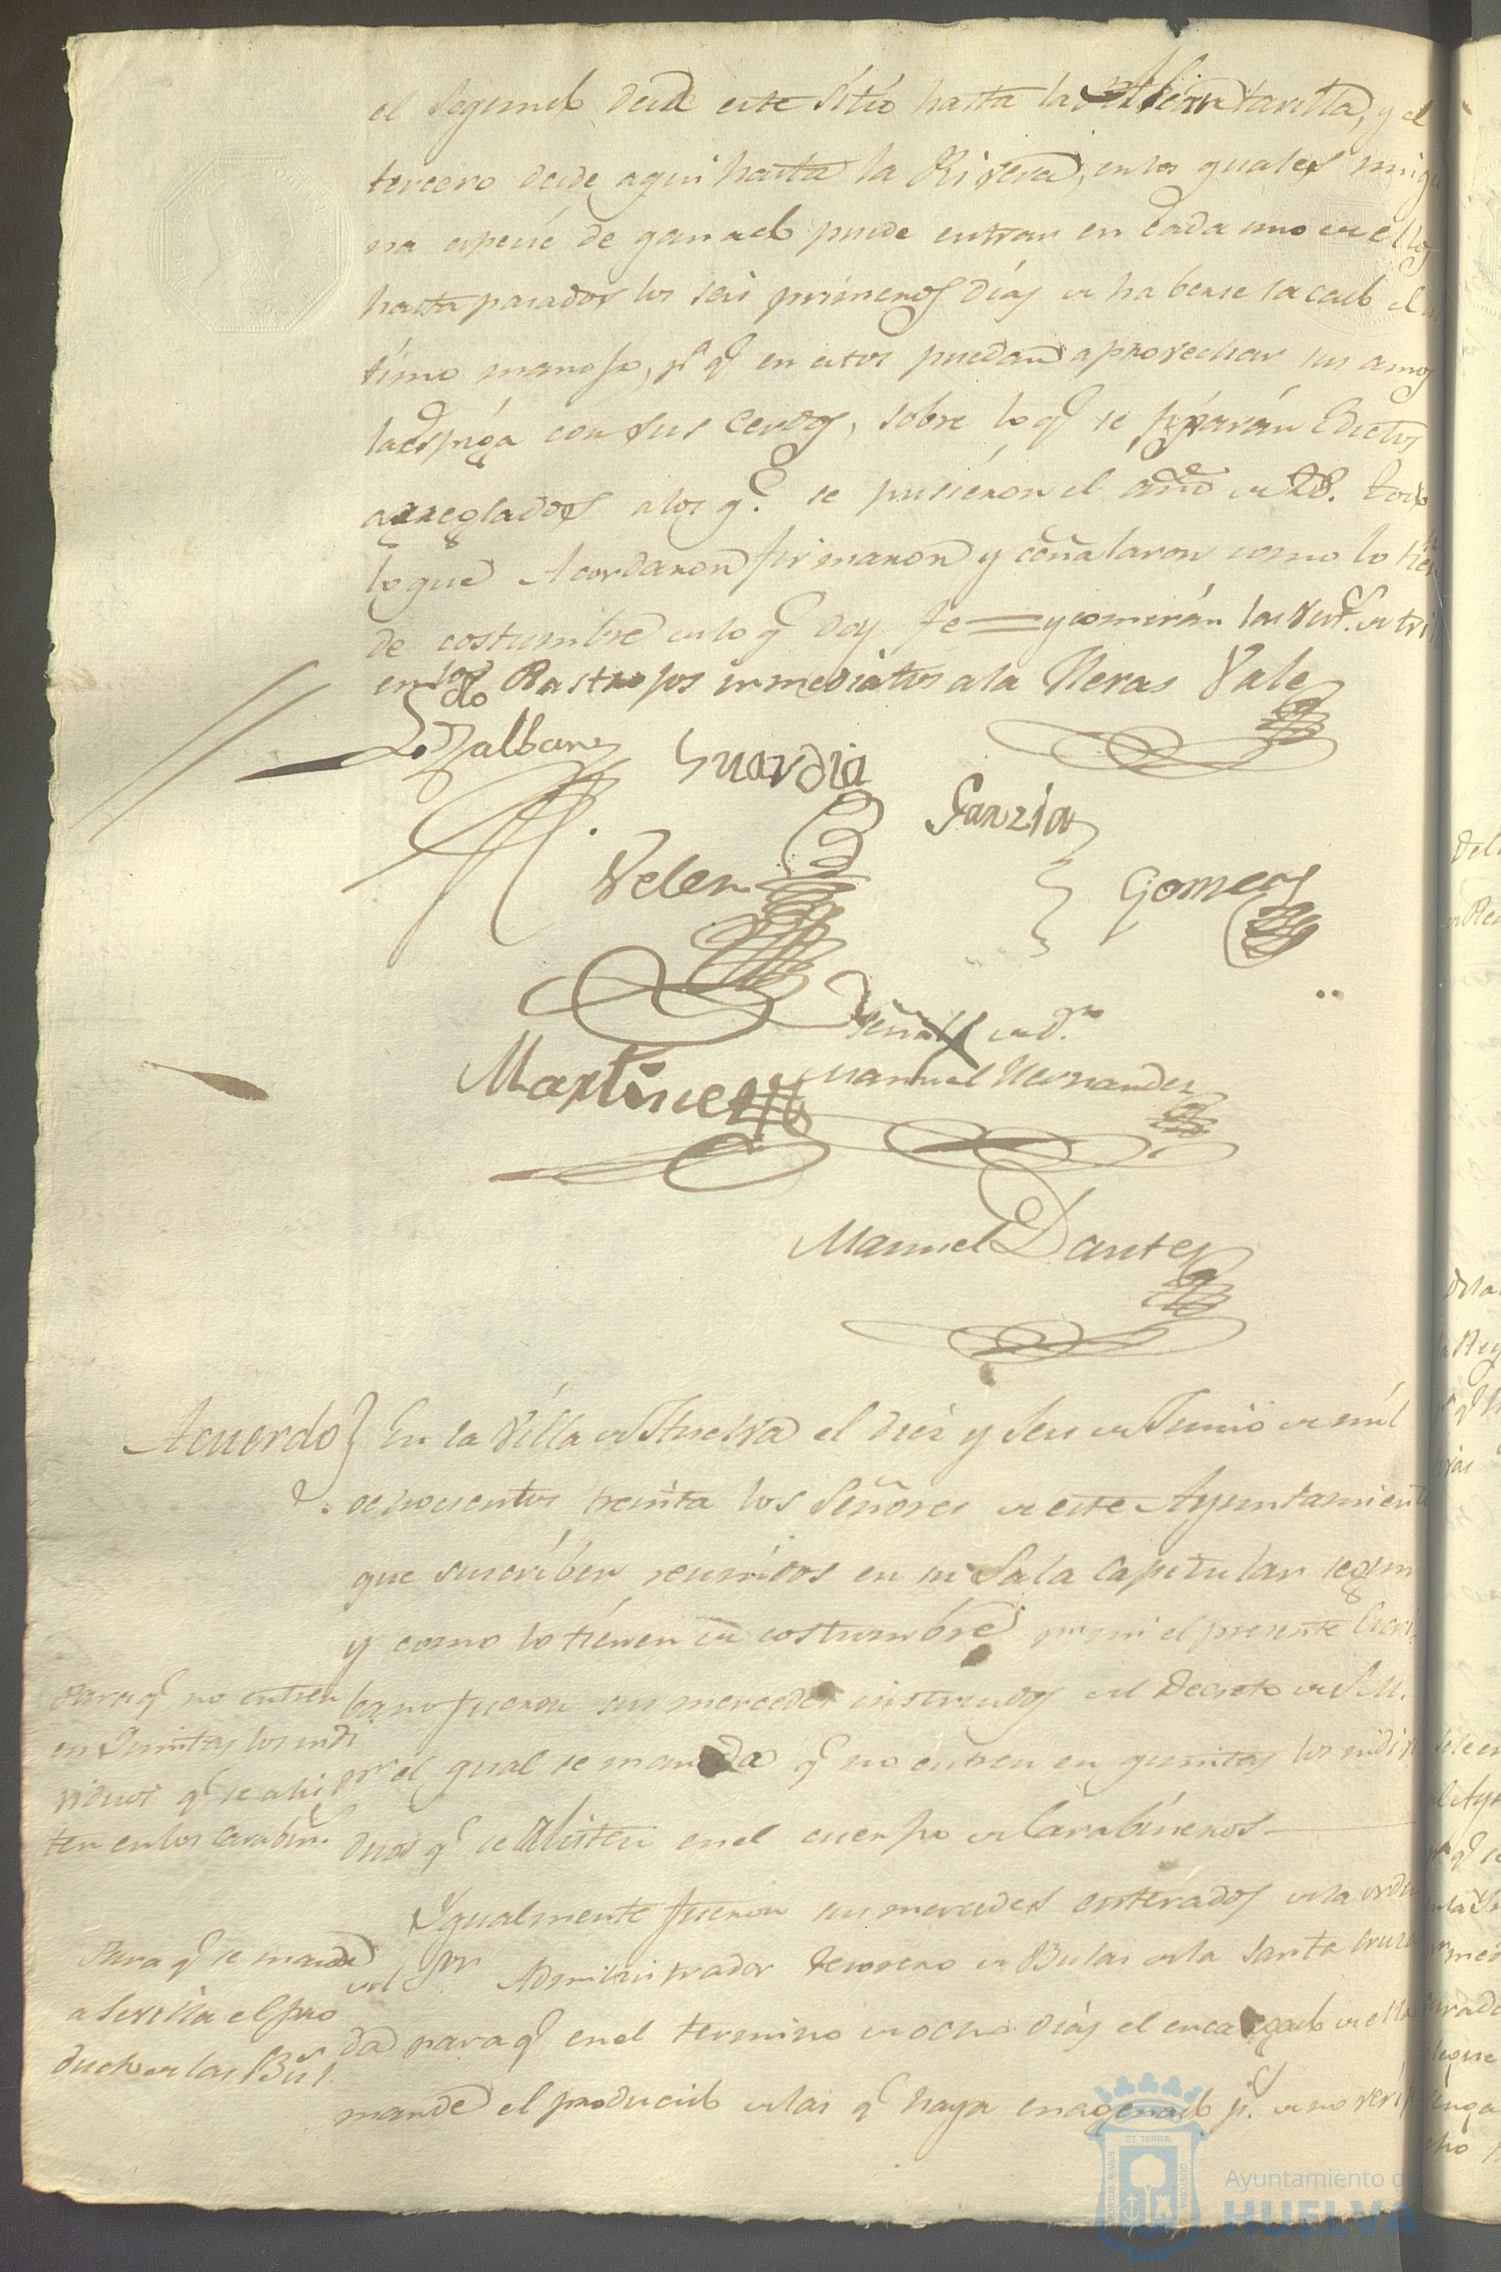 el segundo desde este sitio hasta la Alcantarilla, y el
tercero desde aqui hasta la Rivera, en los quales ningu
na especie de ganado puede entrar en cada uno de ellos
hasta pasados los seis primeros dias de haberse sacado el ul
timo manojo, pª qe en estos puedan aprovechar sus amos
la espiga con sus cerdos, sobre lo qe se fijarán Edictos
arreglados a los qe. se pusieron el año de 28. todo
lo que Acordaron firmaron y señalaron como lo tien
de costumbre de lo qe doy fe = y comerán las de tri
en los Rastrojos inmediatos a la Heras Vale
Guardia
Garzia
Velez
Gomez
Martinez
Señal de Dn
Manuel Hernandez
Manuel Dantes
Acuerdo} En la Villa de Huelva el diez y seis de Junio de mil
ochocientos treinta los Señores de este Ayuntamient
que suscriben reunidos en su Sala Capitular segun
y como lo tienen de costumbre por mi el presente Escri
bano fueron sus mercedes instruidos del Decreto de S.M.
por el qual se manda qe no entren en quintas los indivi
duos qe se alisten en el cuerpo de Carabineros
Para qe no entren
en Quintas los indi
viduos qe se alis
ten en los Carabins.
Ygualmente fueron sus mercedes enterados de la orden
del Sor. Administrador Tesorero de Bulas de la Santa Cruza
da para qe en el termino de ocho dias el encargado de ellas
mande el producido de las qe haya enagenado pª. de no veri
Para qe se mande
a Sevilla el pro
ducto de las Buls.
ET TERRÆ
PORTUS MARIS
CUSTODIA
Ayuntamiento de
HUELVA